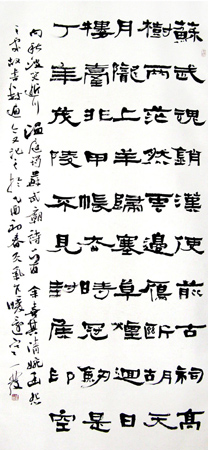 蘇武魂銷漢使前古祠高
樹兩茫然雲邊雁斷胡天
月隴上羊歸塞草煙迴日
樓臺非甲帳去時冠劍是
丁年茂陵不見封侯印空
向秋波哭逝川 溫庭筠詩蘇武廟詩一首 余喜其清婉
乙酉初春天氣大暖